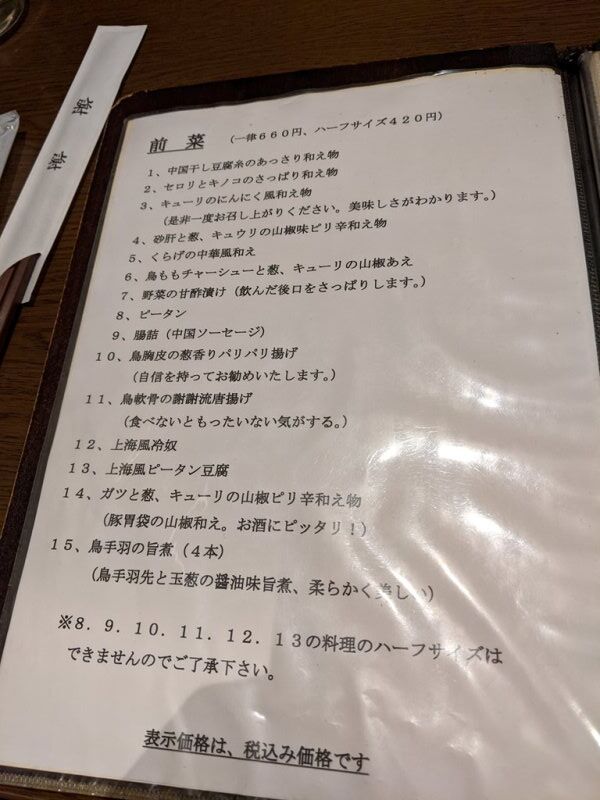 謝 謝
前 菜 (一律660円、ハーフサイズ420円)
1、中国干し豆腐糸のあっさり和え物
2、セロリとキノコのさっぱり和え物
3、キューリのにんにく風和え物
(是非一度お召し上がりください。美味しさがわかります。)
4、砂肝と葱、キュウリの山椒味ピリ辛和え物
5、くらげの中華風和え
6、鳥ももチャーシューと葱、キューリの山椒あえ
7、野菜の甘酢漬け(飲んだ後口をさっぱりします。)
8、ピータン
9、腸詰(中国ソーセージ)
10、鳥胸皮の葱香りパリパリ揚げ
(自信を持ってお勧めいたします。)
11、鳥軟骨の謝謝流唐揚げ
(食べないともったいない気がする。)
12、上海風冷奴
13、上海風ピータン豆腐
14、ガツと葱、キューリの山椒ピリ辛和え物
(豚胃袋の山椒和え。お酒にピッタリ!)
15、鳥手羽の旨煮(4本)
(鳥手羽先と玉葱の醤油味旨煮、柔らかく美しい)
※8.9.10.11.12.13の料理のハーフサイズは
できませんのでご了承下さい。
表示価格は、税込み価格です